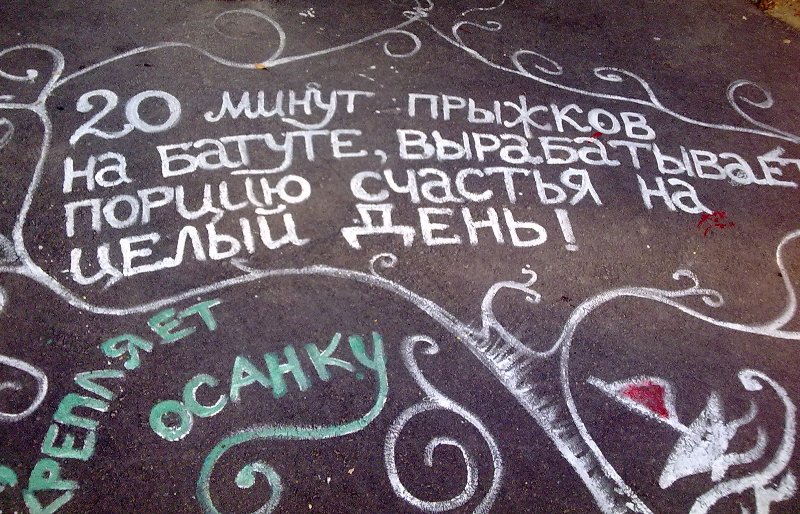 20 минут прыжков
на батуте, вырабатывает
порцию счастья на
целый день!
крепляет
осанку